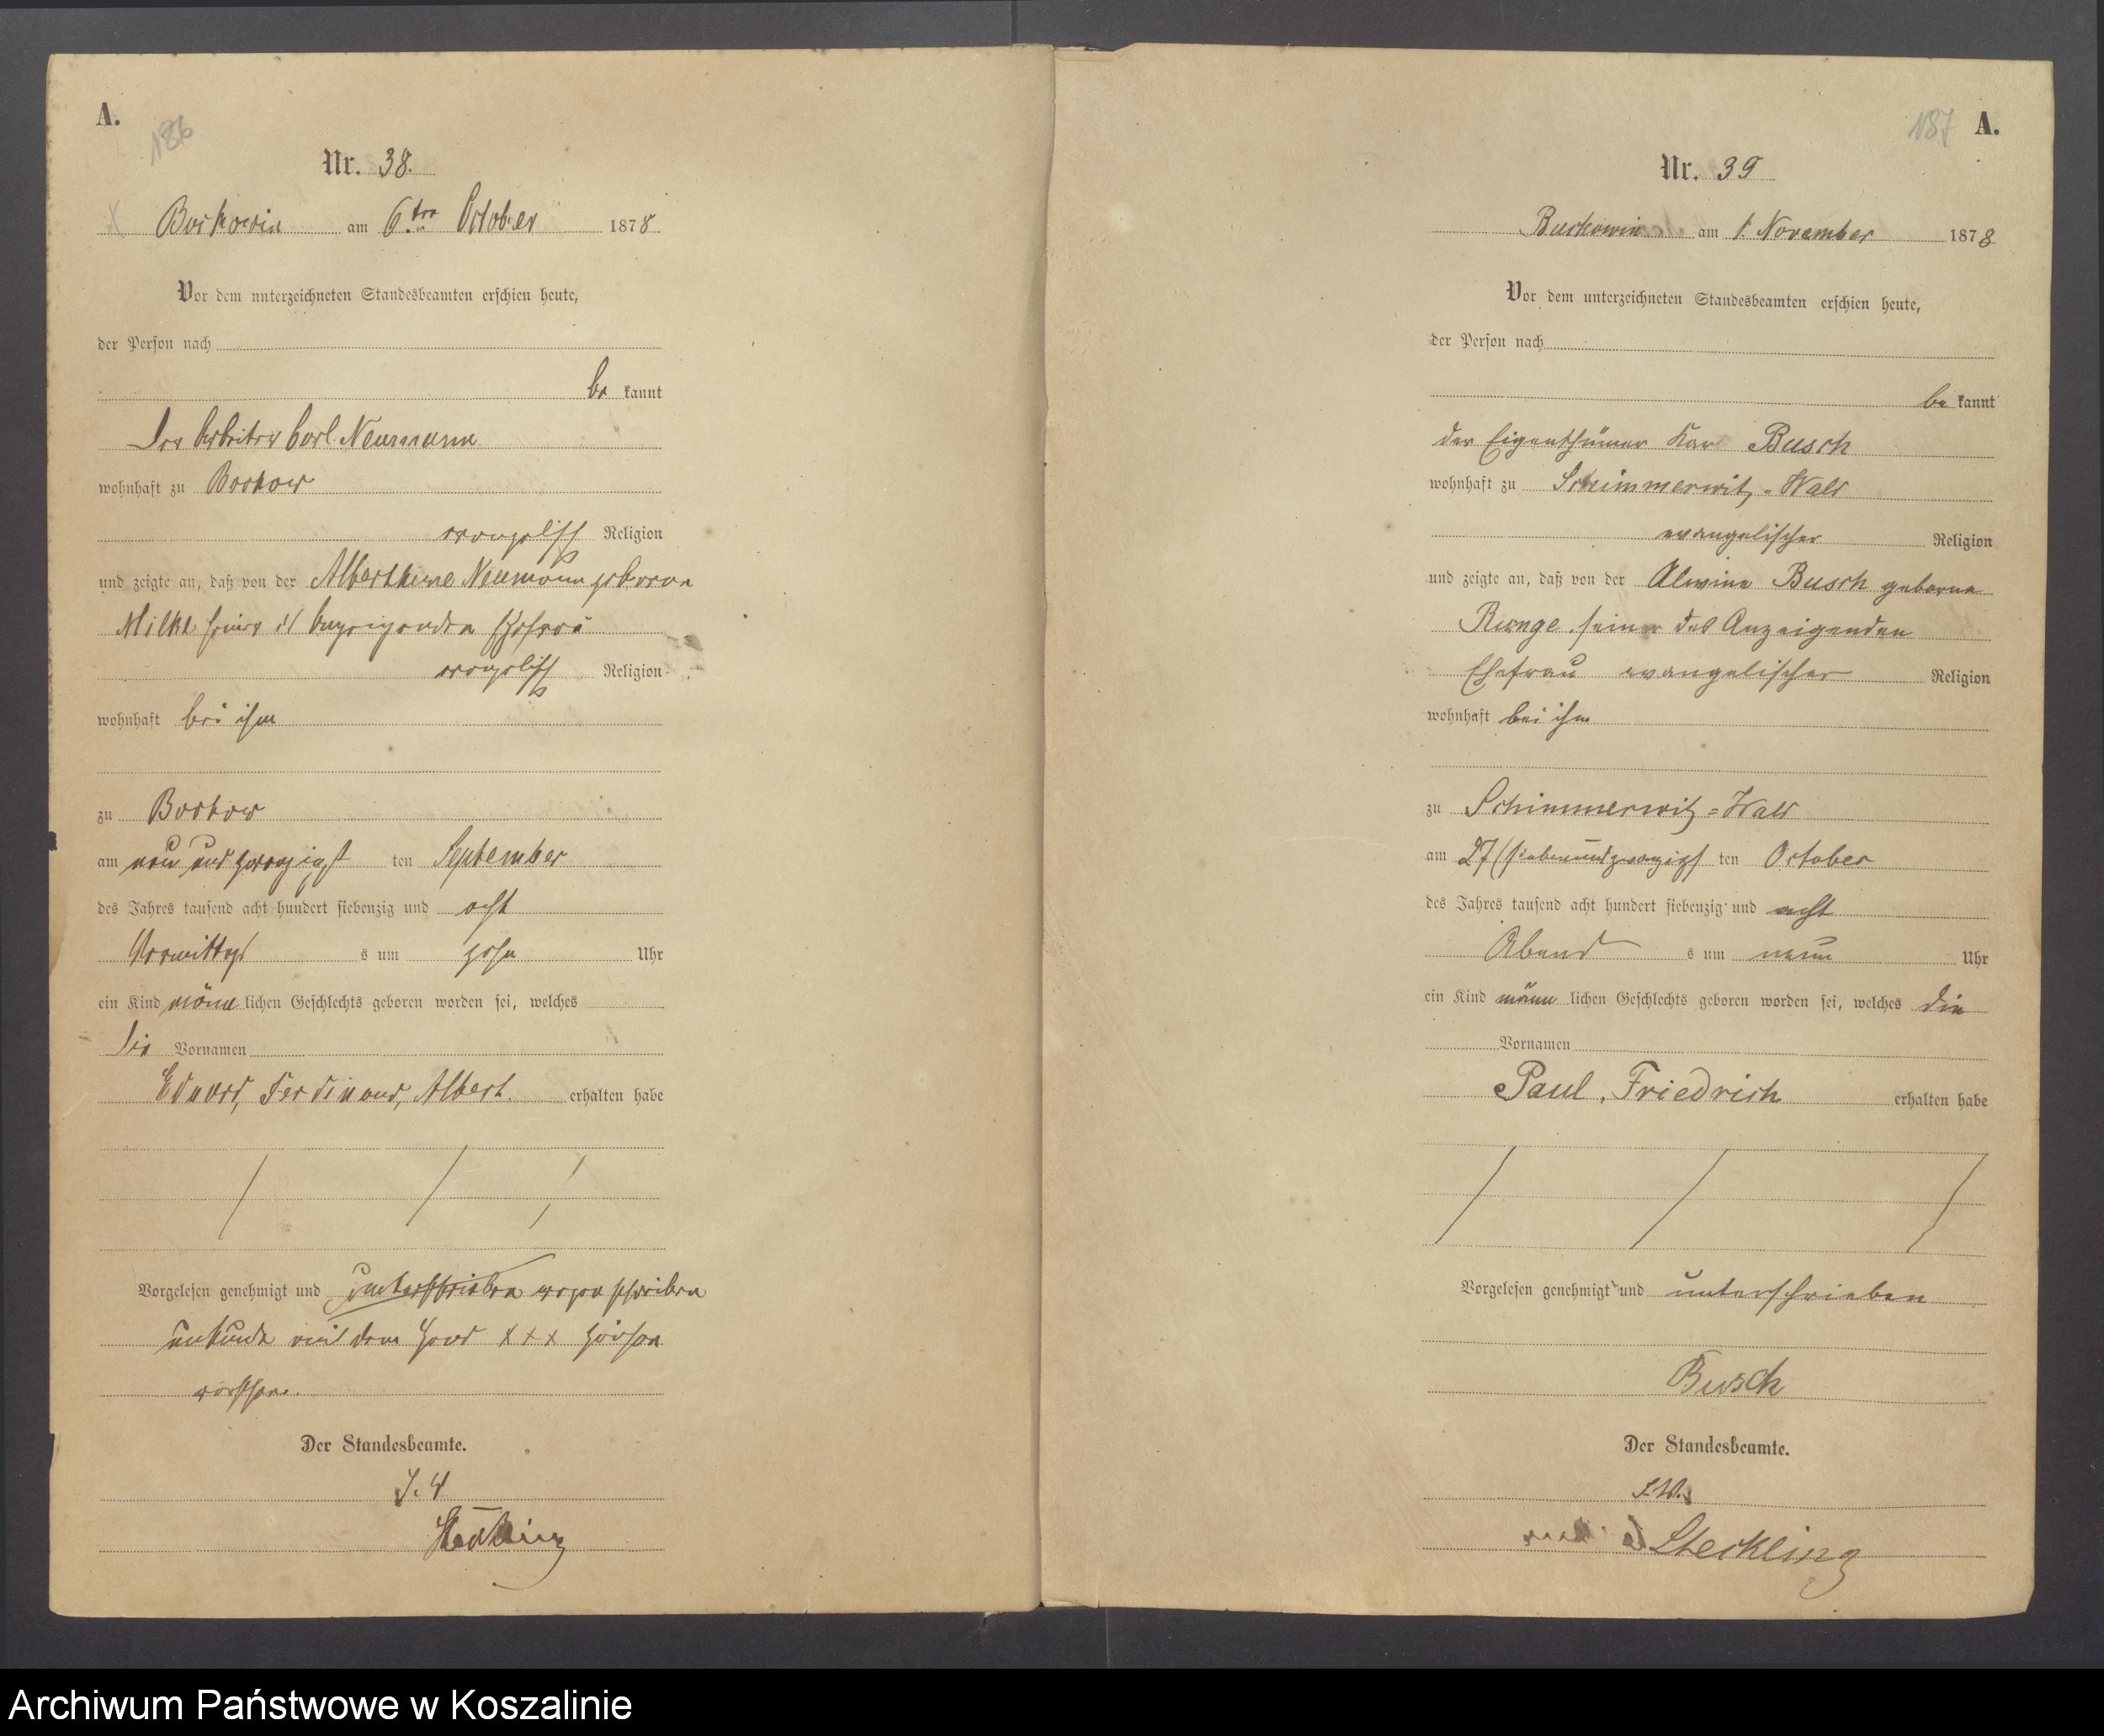 A.
186
Nr. 38.
Buckowin am 6.ten October 1878
Vor dem unterzeichneten Standesbeamten erschien heute,
der Person nach
be kannt
der Arbeiter Carl Neumann
wohnhaft zu Bochow
evangelisch Religion
und zeigte an, daß von der Alberthine Neumann geborene
Milke seiner des Anzeigenden Ehefrau
evangelisch Religion
wohnhaft bei ihm
zu Bochow
am neun und zwanzigst ten September
des Jahres tausend acht hundert siebenzig und acht
Vormittag s um zehn Uhr
ein Kind männ lichen Geschlechts geboren worden sei, welches
die Vornamen
Eduard, Ferdinand, Albert. erhalten habe
Vorgelesen genehmigt und unterschrieben wegen schreiben
unkunde mit dem Hand xxx Zeichen
versehen.
Der Standesbeamte.
J. V
Steckling
187 A.
Nr. 39
Buckowin am 1. November 1878
Vor dem unterzeichneten Standesbeamten erschien heute,
der Person nach
be kannt
der Eigenthümer Karl Busch
wohnhaft zu Schimmerwitz-Wald
evangelischer Religion
und zeigte an, daß von der Alwine Busch geborne
Runge seiner des Anzeigenden
Ehefrau evangelischer Religion
wohnhaft bei ihm
zu Schimmerwitz=Wald
am 27 (siebenundzwanzigs ten October
des Jahres tausend acht hundert siebenzig und acht
Abend s um neun Uhr
ein Kind männ lichen Geschlechts geboren worden sei, welches die
Vornamen
Paul, Friedrich erhalten habe
Vorgelesen genehmigt und unterschrieben
Busch
Der Standesbeamte.
Steckling
Archiwum Państwowe w Koszalinie